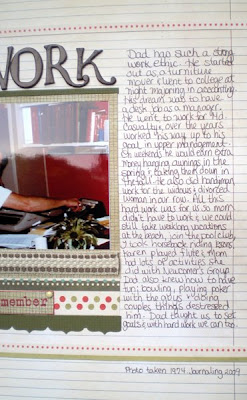 WORK
Dad has such a strong
work ethic. He started
out as a furniture
mover & went to college at
night majoring in accounting.
His dream was to have
a desk job as a manager.
He went to work for
Casualty & over the years
worked his way up to his
goal, in upper management.
On weekends he would earn extra
money hanging awnings in the
spring & taking them down in
the fall. He also did handyman
work for the widows & divorced
women in our . All this
hard work was for us so mom
didn't have to work & we could
still take weeklong vacations
at the beach, join the pool club,
I took horseback riding lessons,
Karen played flute & Mom
had lots of activities she
did with Newcomer's Group.
Dad also knew how to have
fun; bowling, playing poker
with the guys & doing
couples things destressed
him. Dad taught us to set
goals & with hard work we can too.
remember
Photo taken 1974 Journaling 2009